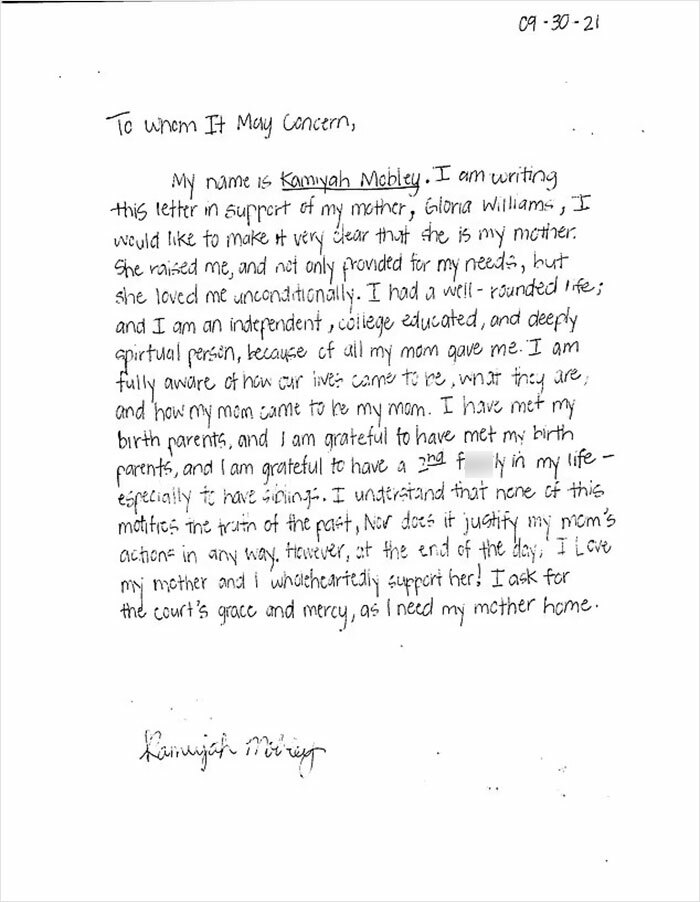 09-30-21
To Whom It May Concern,
My name is Kamiyah Mobley. I am writing
this letter in support of my mother, Gloria Williams, I
would like to make it very clear that she is my mother.
She raised me, and not only provided for my needs, but
she loved me unconditionally. I had a well-rounded life;
and I am an independent, college educated, and deeply
spirtual person, because of all my mom gave me. I am
fully aware of how our lives came to be, what they are,
and how my mom came to be my mom. I have met my
birth parents, and I am grateful to have met my birth
parents, and I am grateful to have a 2nd in my life -
especially to have siblings. I understand that none of this
motifies the truth of the past, Nor does it justify my mom's
actions in any way. However, at the end of the day, I Love
my mother and I wholeheartedly support her! I ask for
the court's grace and mercy, as I need my mother home.
Kamiyah Mobley